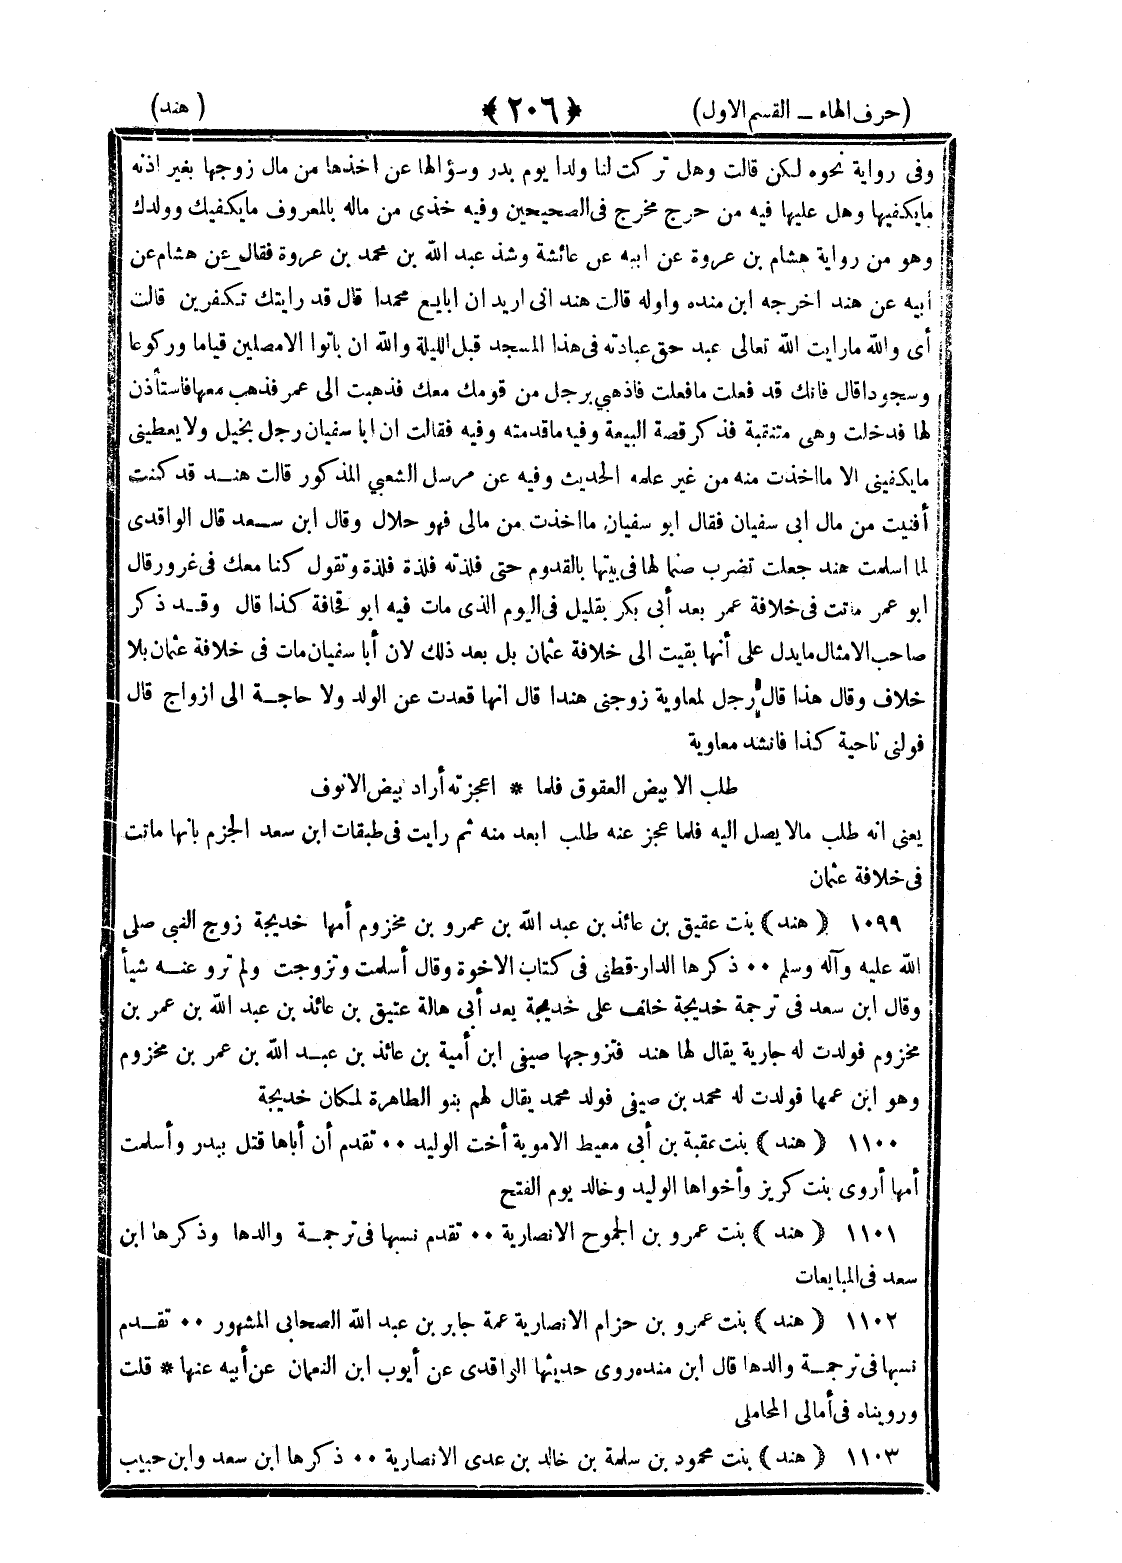 (حرف الهاء ــ القسم الاول) ﴿٢٠٦﴾ (هند)
وفى رواية نحوه لكن قالت وهل تركت لنا ولدا يوم بدر وسؤالها عن اخذها من مال زوجها بغير اذنه
مايكفيها وهل عليها فيه من حرج مخرج فى الصحيحين وفيه خذى من ماله بالمعروف مايكفيك وولدك
وهو من رواية هشام بن عروة عن ابيه عن عائشة وشذ عبد الله بن محمد بن عروة فقال عن هشام عن
أبيه عن هند اخرجه ابن منده واوله قالت هند انى اريد ان ابايع محمدا قال قد رايتك تكفرين قالت
أى والله مارايت الله تعالى عبد حق عبادته فى هذا المسجد قبل الليلة والله ان باتوا الامصلين قياما وركوعا
وسجودا قال فانك قد فعلت مافعلت فاذهبي برجل من قومك معك فذهبت الى عمر فذهب معها فاستأذن
لها فدخلت وهى متنقبة فذكر قصة البيعة وفيه ماقدمته وفيه فقالت ان ابا سفيان رجل بخيل ولا يعطينى
مايكفينى الا مااخذت منه من غير علمه الحديث وفيه عن مرسل الشعبي المذكور قالت هنــد قد كنت
أفنيت من مال ابى سفيان فقال ابو سفيان مااخذت من مالى فهو حلال وقال ابن ســعد قال الواقدى
لما اسلمت هند جعلت تضرب صنما لها فى بيتها بالقدوم حتى فلذته فلذة فلذة وتقول كنا معك فى غرور قال
ابو عمر ماتت فى خلافة عمر بعد أبى بكر بقليل فى اليوم الذى مات فيه ابو قحافة كذا قال وقــد ذكر
صاحب الامثال مايدل على أنها بقيت الى خلافة عثمان بل بعد ذلك لان أبا سفيان مات فى خلافة عثمان بلا
خلاف وقال هذا قال رجل لمعاوية زوجنى هندا قال انها قعدت عن الولد ولا حاجــة الى ازواج قال
فولنى ناحية كذا فانشد معاوية
طلب الابيض العقوق فلما * اعجزته أراد بيض الانوف
يعنى انه طلب مالا يصل اليه فلما عجز عنه طلب ابعد منه ثم رايت فى طبقات ابن سعد الجزم بانها ماتت
فى خلافة عثمان
١٠٩٩ ﴿هند﴾ بنت عقيق بن عائذ بن عبد الله بن عمرو بن مخزوم أمها خديجة زوج النبى صلى
الله عليه وآله وسلم ٠٠ ذكرها الدارقطنى فى كتاب الاخوة وقال أسلمت وتزوجت ولم ترو عنــه شيأ
وقال ابن سعد فى ترجمة خديجة خلف على خديجة بعد أبى هالة عتيق بن عائذ بن عبد الله بن عمر بن
مخزوم فولدت له جارية يقال لها هند فتزوجها صيفى ابن أمية بن عائذ بن عبــد الله بن عمر بن مخزوم
وهو ابن عمها فولدت له محمد بن صيفى فولد محمد يقال لهم بنو الطاهرة لمكان خديجة
١١٠٠ ﴿هند﴾ بنت عقبة بن أبى معيط الاموية أخت الوليد ٠٠ تقدم أن أباها قتل ببدر وأسلمت
أمها أروى بنت كريز وأخواها الوليد وخالد يوم الفتح
١١٠١ ﴿هند﴾ بنت عمرو بن الجموح الانصارية ٠٠ تقدم نسبها فى ترجمــة والدها وذكرها ابن
سعد فى المبايعات
١١٠٢ ﴿هند﴾ بنت عمرو بن حزام الانصارية عمة جابر بن عبد الله الصحابى المشهور ٠٠ تقــدم
نسبها فى ترجمــة والدها قال ابن منده روى حديثها الواقدى عن أيوب ابن النعمان عن أبيه عنها * قلت
ورويناه فى أمالى المحاملى
١١٠٣ ﴿هند﴾ بنت محمود بن سلمة بن خالد بن عدى الانصارية ٠٠ ذكرها ابن سعد وابن حبيب